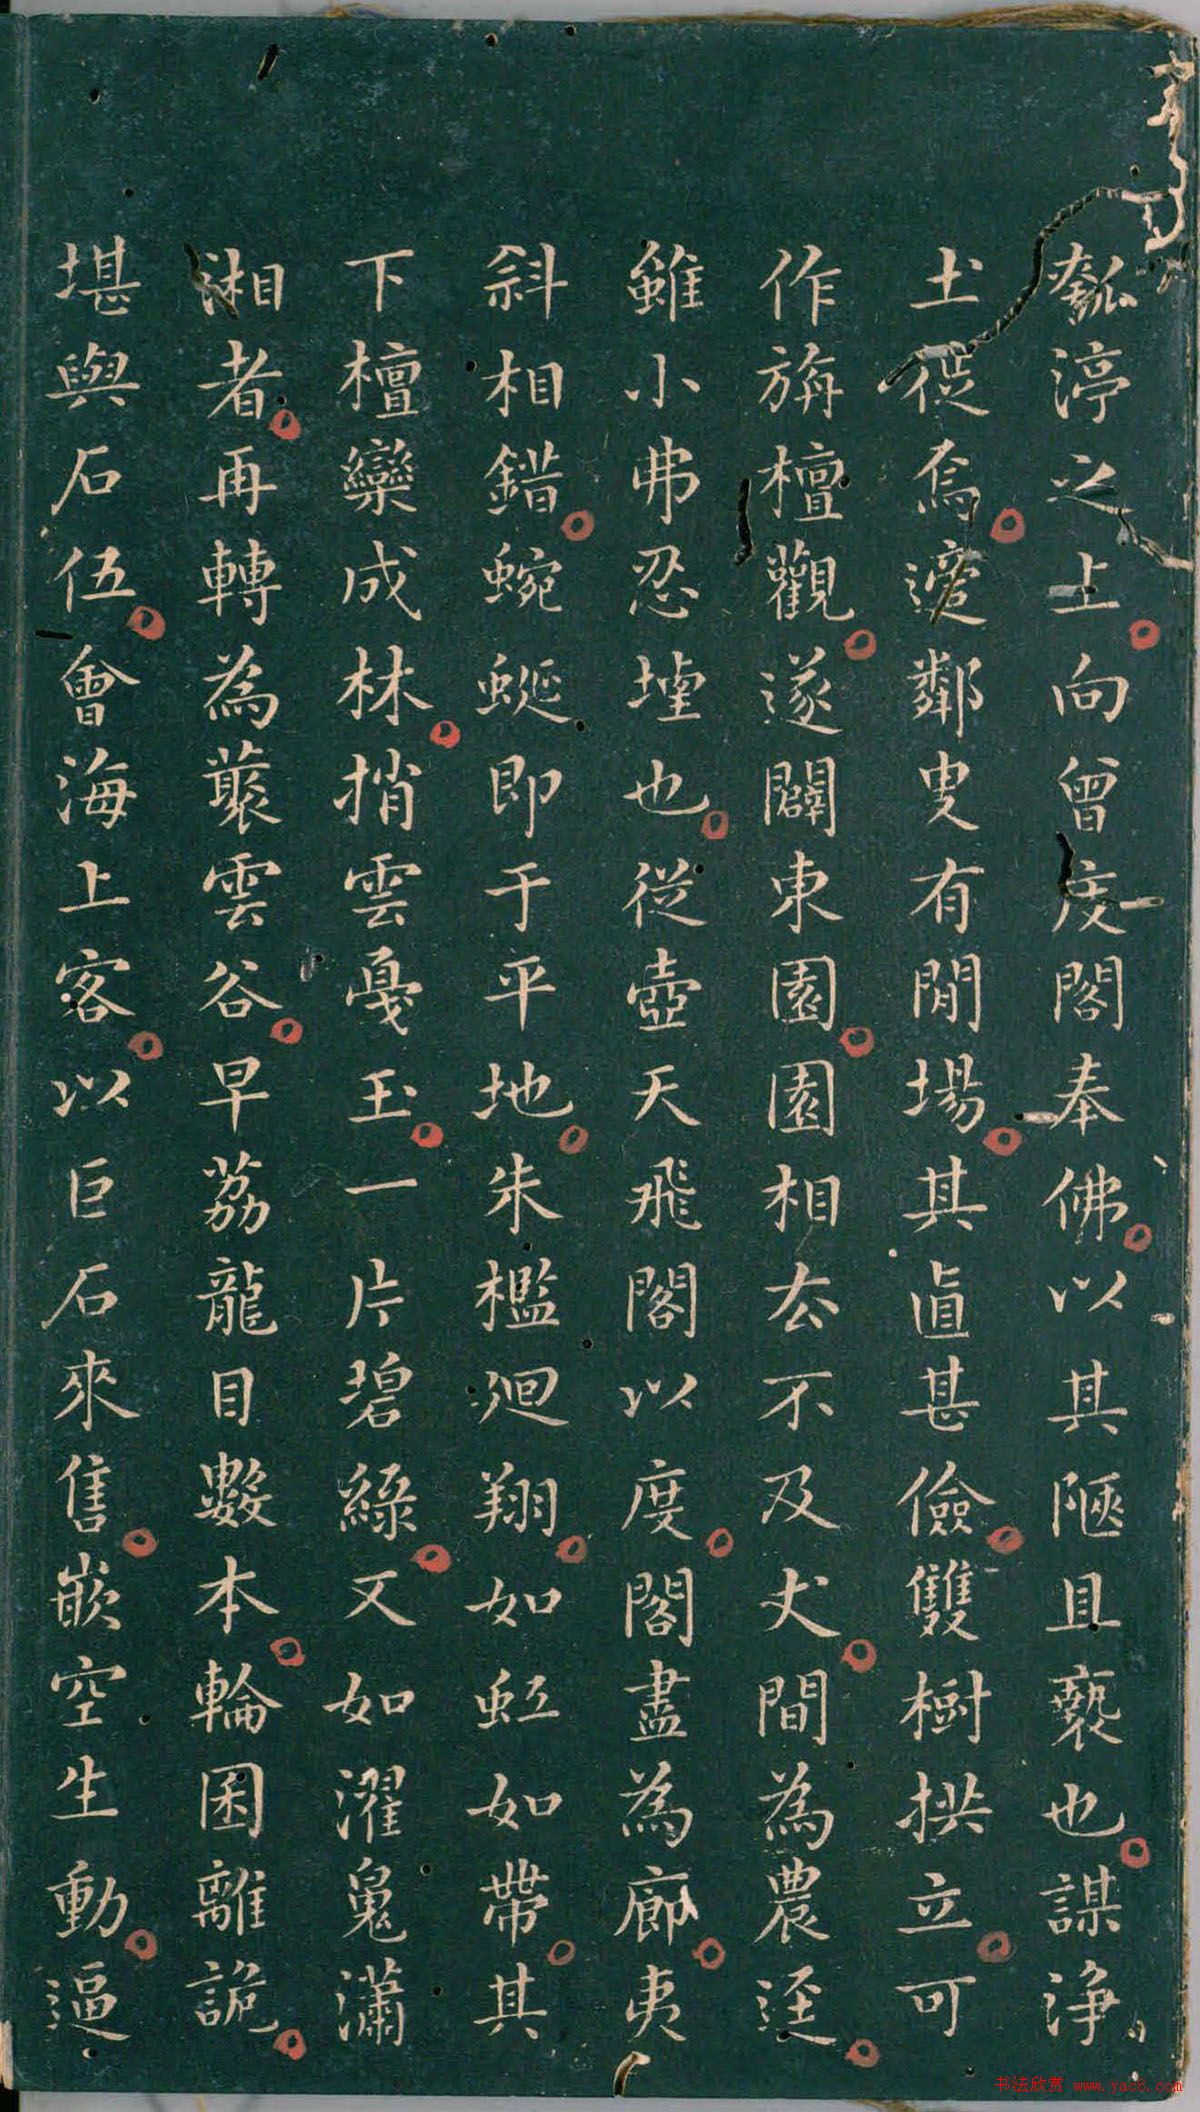 瓠渟之上向曾度閣奉佛以其陋且褻也謀淨
土徙焉適鄰叟有閒場其直甚儉雙樹拱立可
作旃檀觀遂闢東園園相去不及丈間為農迳
雖小弗忍堙也從壺天飛閣以度閣盡為廊夷
斜相錯蜿蜒即于平地朱檻迴翔如虹如帶其
下檀欒成林捎雲戛玉一片碧綠又如濯魂瀟
湘者再轉為叢雲谷早荔龍目數本輪囷離詭
堪與石伍會海上客以巨石來售嵌空生動逼
书法欣赏 www.yac8.com